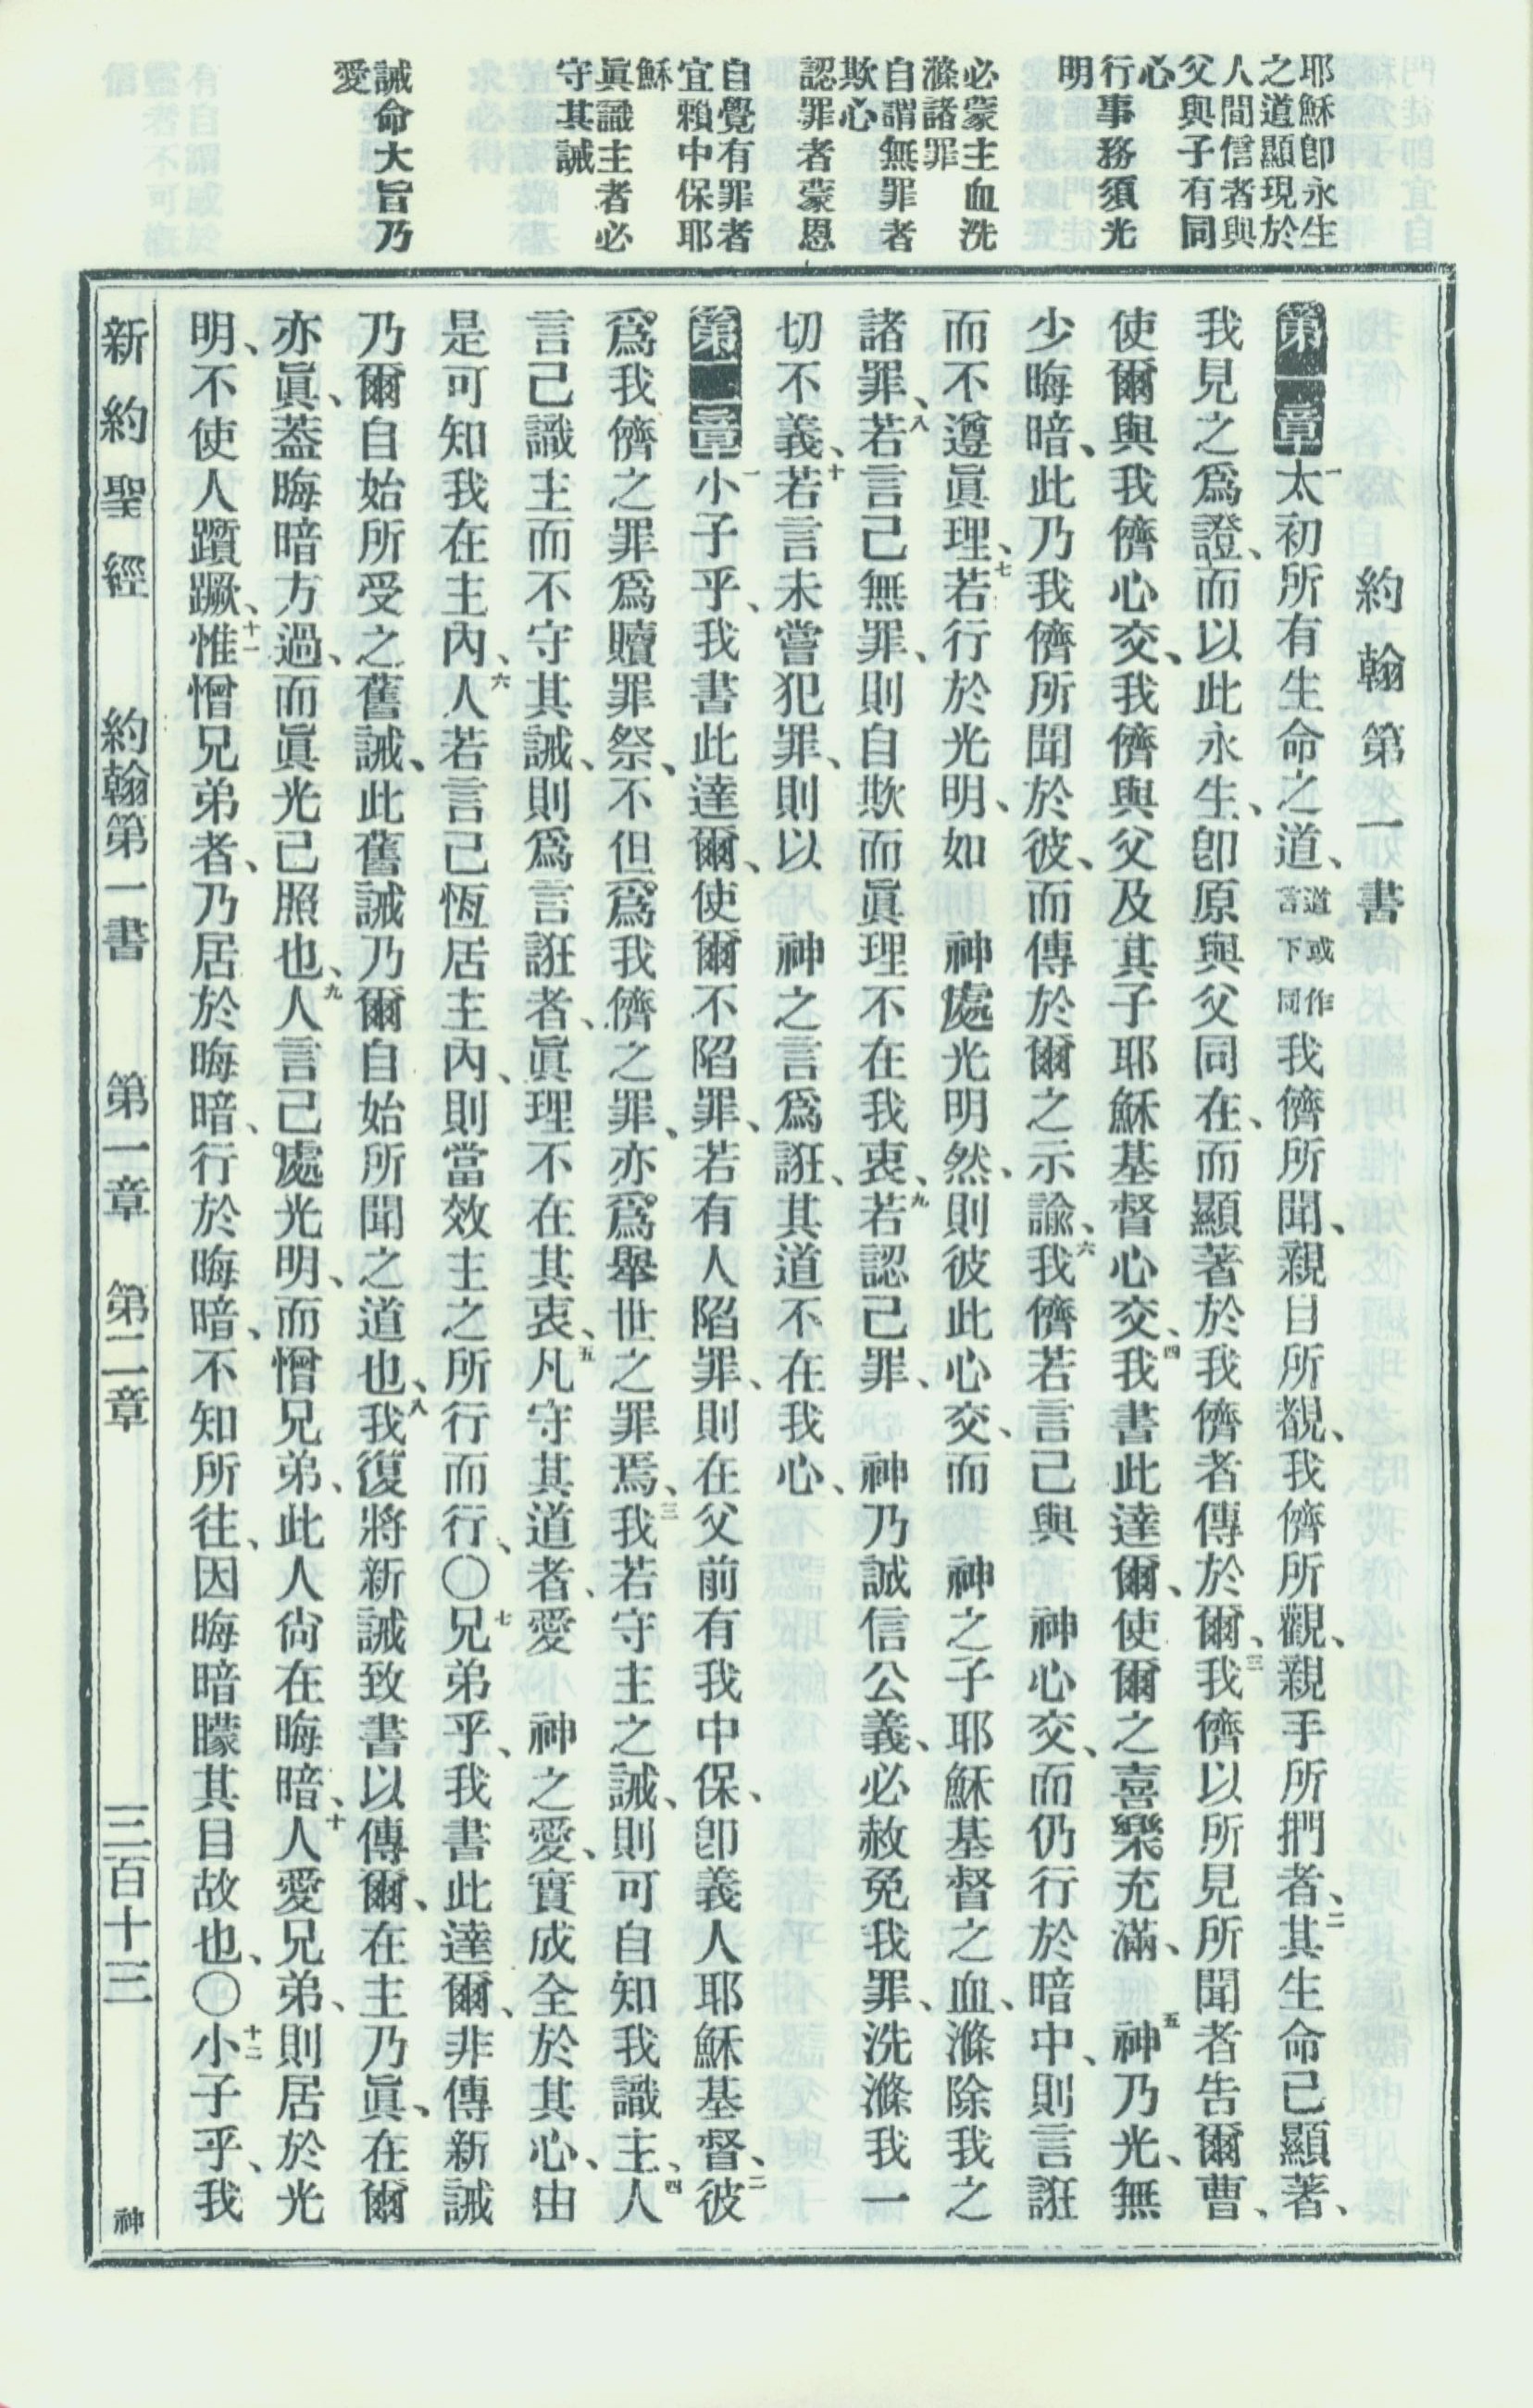 耶穌卽永生
之道顯現於
人間信者與
父與子有同
心
行事務須光
明
必蒙主血洗
滌諸罪
自謂無罪者
欺心
認罪者蒙恩
自覺有罪者
宜賴中保耶
穌
眞識主者必
守其誡
誡命大旨乃
愛
約翰第一書
第一章 一太初所有生命之道、道或作言下同我儕所聞、親目所覩、我儕所觀、親手所捫者、二其生命已顯著、
我見之爲證、而以此永生、卽原與父同在、而顯著於我儕者傳於爾、三我儕以所見所聞者告爾曹、
使爾與我儕心交、我儕與父及其子耶穌基督心交、四我書此達爾、使爾之喜樂充滿、五神乃光、無
少晦暗、此乃我儕所聞於彼、而傳於爾之示諭、六我儕若言己與 神心交、而仍行於暗中、則言誑
而不遵眞理、七若行於光明、如 神處光明然、則彼此心交、而 神之子耶穌基督之血、滌除我之
諸罪、八若言己無罪、則自欺而眞理不在我衷、九若認己罪、 神乃誠信公義、必赦免我罪、洗滌我一
切不義、十若言未嘗犯罪、則以 神之言爲誑、其道不在我心、
第二章 一小子乎、我書此達爾、使爾不陷罪、若有人陷罪、則在父前有我中保、卽義人耶穌基督、二彼
爲我儕之罪爲贖罪祭、不但爲我儕之罪、亦爲舉世之罪焉、三我若守主之誡、則可自知我識主、四人
言己識主而不守其誡、則爲言誑者、眞理不在其衷、五凡守其道者、愛 神之愛、實成全於其心、由
是可知我在主內、六人若言己恆居主內、則當效主之所行而行、〇七兄弟乎、我書此達爾、非傳新誡
乃爾自始所受之舊誡、此舊誡乃爾自始所聞之道也、八我復將新誡致書以傳爾、在主乃眞、在爾
亦眞、蓋晦暗方過、而眞光已照也、九人言己處光明、而憎兄弟、此人尙在晦暗、十人愛兄弟、則居於光
明、不使人躓蹶、十一惟憎兄弟者、乃居於晦暗、行於晦暗、不知所往、因晦暗矇其目故也、〇十二小子乎、我
新約聖經 約翰第一書 第一章 第二章 三百十三 神